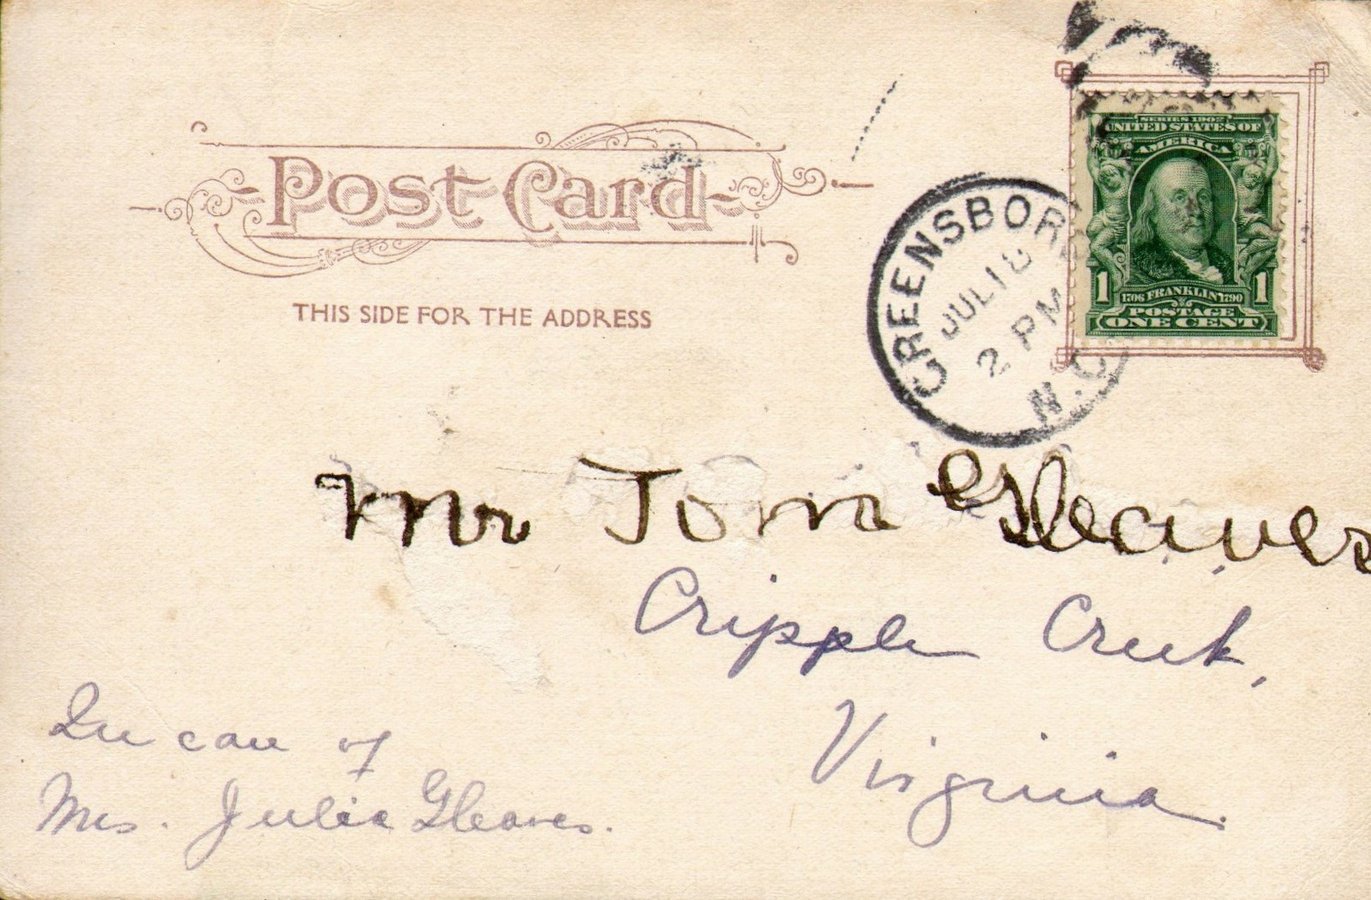 Post Card
THIS SIDE FOR THE ADDRESS
GREENSBORO
JUL 18
2 PM
N.C.
SERIES 1902
UNITED STATES OF
AMERICA
1 1
1706 FRANKLIN 1790
POSTAGE
ONE CENT
Mr Tom Gleaves
Cripple Creek,
Virginia.
In care of
Mrs. Julia Gleaves.